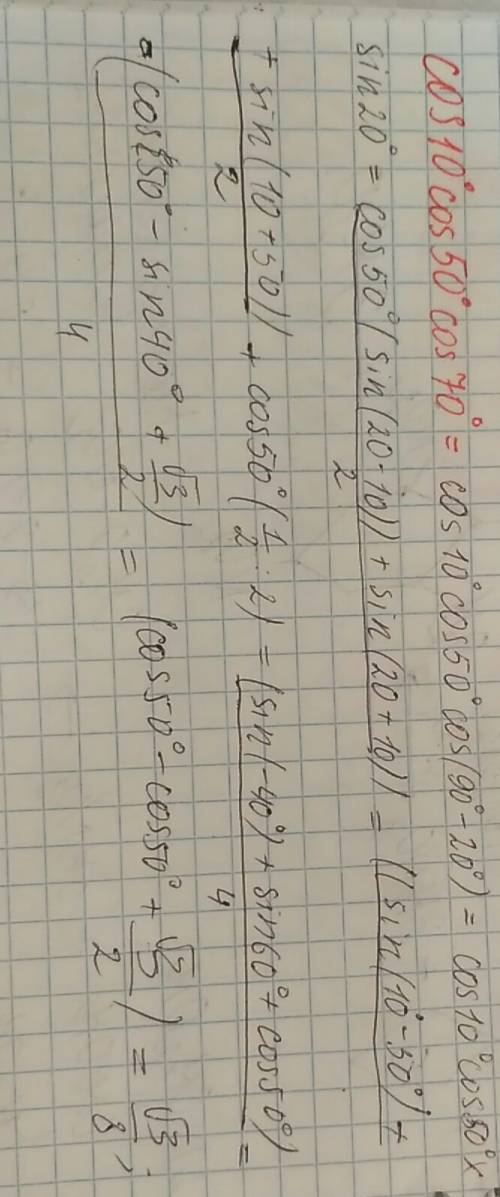 cos 10° cos 50° cos 70° = cos 10° cos 50° cos(90° - 20°) = cos 10° cos 50° ×
sin 20° = cos 50° (sin(20-10)) + sin(20+10)) / 2 = ((sin(10° - 50°) +
+ sin(10+50)) / 2 + cos 50° (1/2 · 2) = (sin(-40°) + sin 60° + cos 50°) / 4 =
= (cos 50° - sin 40° + √3/2) / 4 = (cos 50° - cos 50° + √3/2) = √3/8;